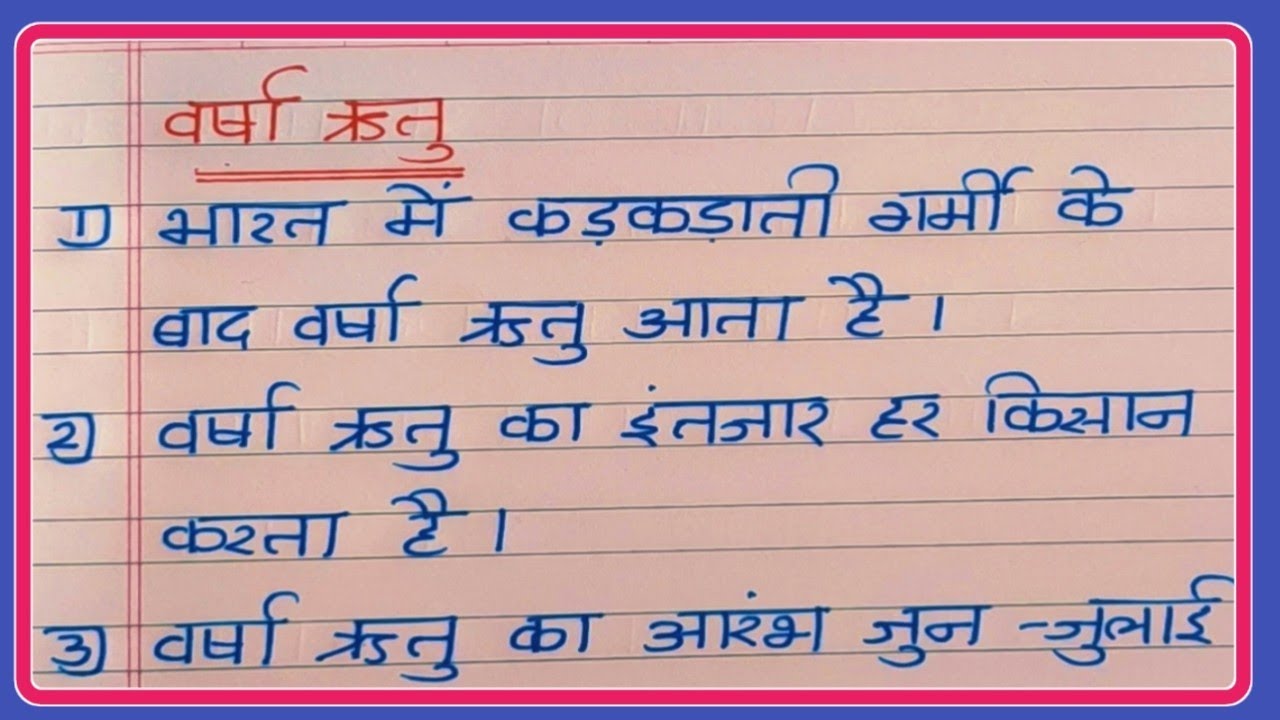 वर्षा ऋतु
1) भारत में कड़कड़ाती गर्मी के
बाद वर्षा ऋतु आता है।
२) वर्षा ऋतु का इंतजार हर किसान
करता है।
3) वर्षा ऋतु का आरंभ जुन -जुलाई